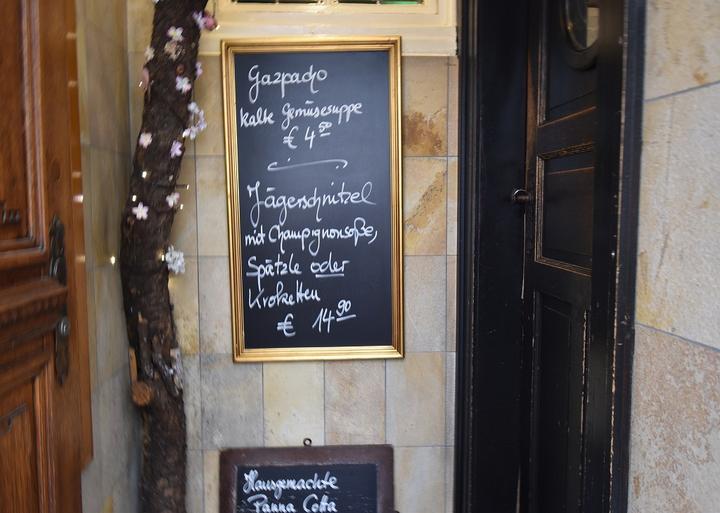 Gazpacho
kalte Gemüsesuppe
€ 4 50
Jägerschnitzel
mit Champignonsoße,
Spätzle oder
Kroketten
€ 14 90
Hausgemachte
Panna Cotta